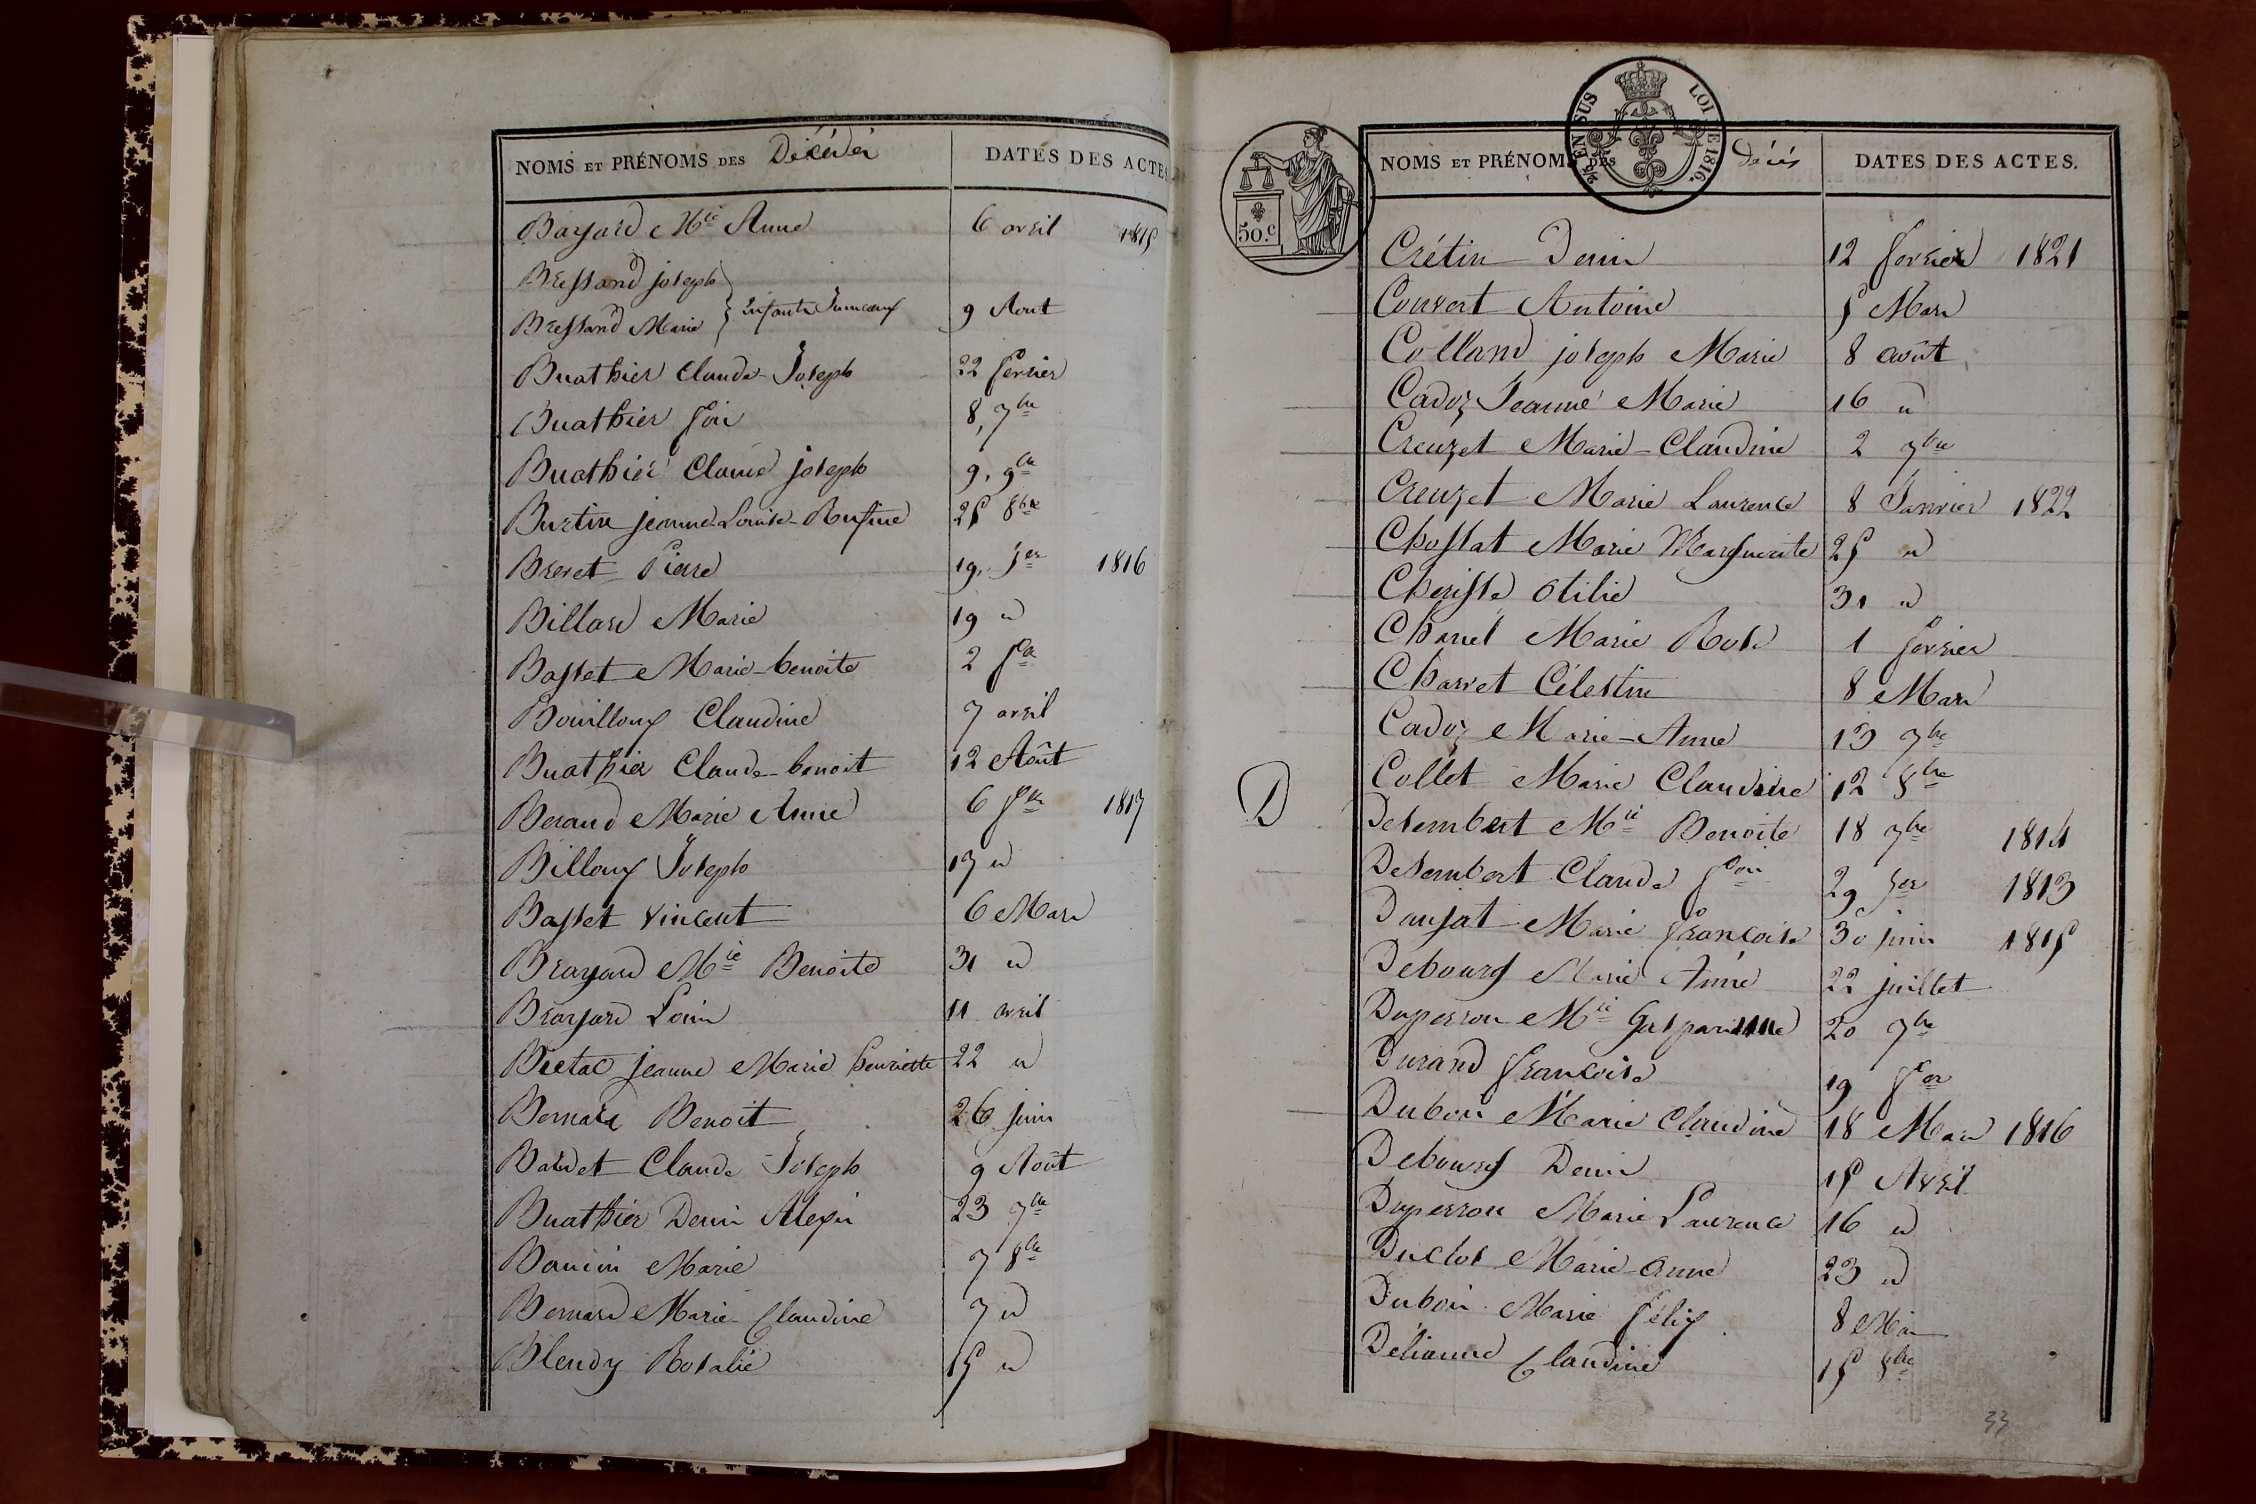 NOMS ET PRÉNOMS DES Décédés DATES DES ACTES
Bayard Mie Anne 6 avril 1815
Bressand joseph
Bressand Marie } Enfants Jumeaux 9 Aout
Buathier Claude-Joseph 22 fevrier
Buathier fois 8, 7bre
Buathier Claude joseph 9, 9bre
Burtin jeanne-Louise-Rufine 25 8bre
Brevet Pierre 19, Jer 1816
Billard Marie 19 id
Bastet Marie-benoite 2 fer
Bouilloux Claudine 7 avril
Buathier Claude-benoit 12 Août
Beraud Marie Anne 6 fer 1817
Billoux Joseph 17 id
Bastet vincent 6 Mars
Brayard Mie Benoite 31 id
Brayard Louis 11 avril
Bretac jeanne Marie henriette 22 id
Bernard Benoit 26 juin
Baudet Claude Joseph 9 Août
Buathier Denis Alexis 23 7bre
Bonnin Marie 7 8bre
Bernard Marie-Claudine 7 id
Blendy Rosalie 15 id
NOMS ET PRÉNOMS DES décès DATES DES ACTES.
EN SUS LOI DE 1816.
50.c
Crétin Denis 12 fevrier 1821
Convert Antoine 5 Mars
Colland joseph Marie 8 août
Cadoz Jeanne Marie 16 id
Creuzet Marie-Claudine 2 7bre
Creuzet Marie Laurence 8 Janvier 1822
Chossat Marie Marguerite 25 id
Cherisse Otilie 31 id
Chanel Marie Rose 1 fevrier
Charvet Célestin 8 Mars
Cadoz Marie-Anne 13 7bre
Collet Marie Claudine 12 8bre
D
Desembert Mie Benoite 18 7bre 1814
Desembert Claude fois 29 Jer 1813
Daujat Marie françoise 30 juin 1815
Debourg Marie Anne 22 juillet
Duperron Mie Gasparinne 20 7bre
Durand françoise 19 fer
Dubois Marie Claudine 18 Mars 1816
Debourg Denis 15 Avril
Duperron Marie Laurence 16 id
Duclos Marie-anne 23 id
Dubois Marie félix 8 Mai
Délianne Claudine 15 8bre
33